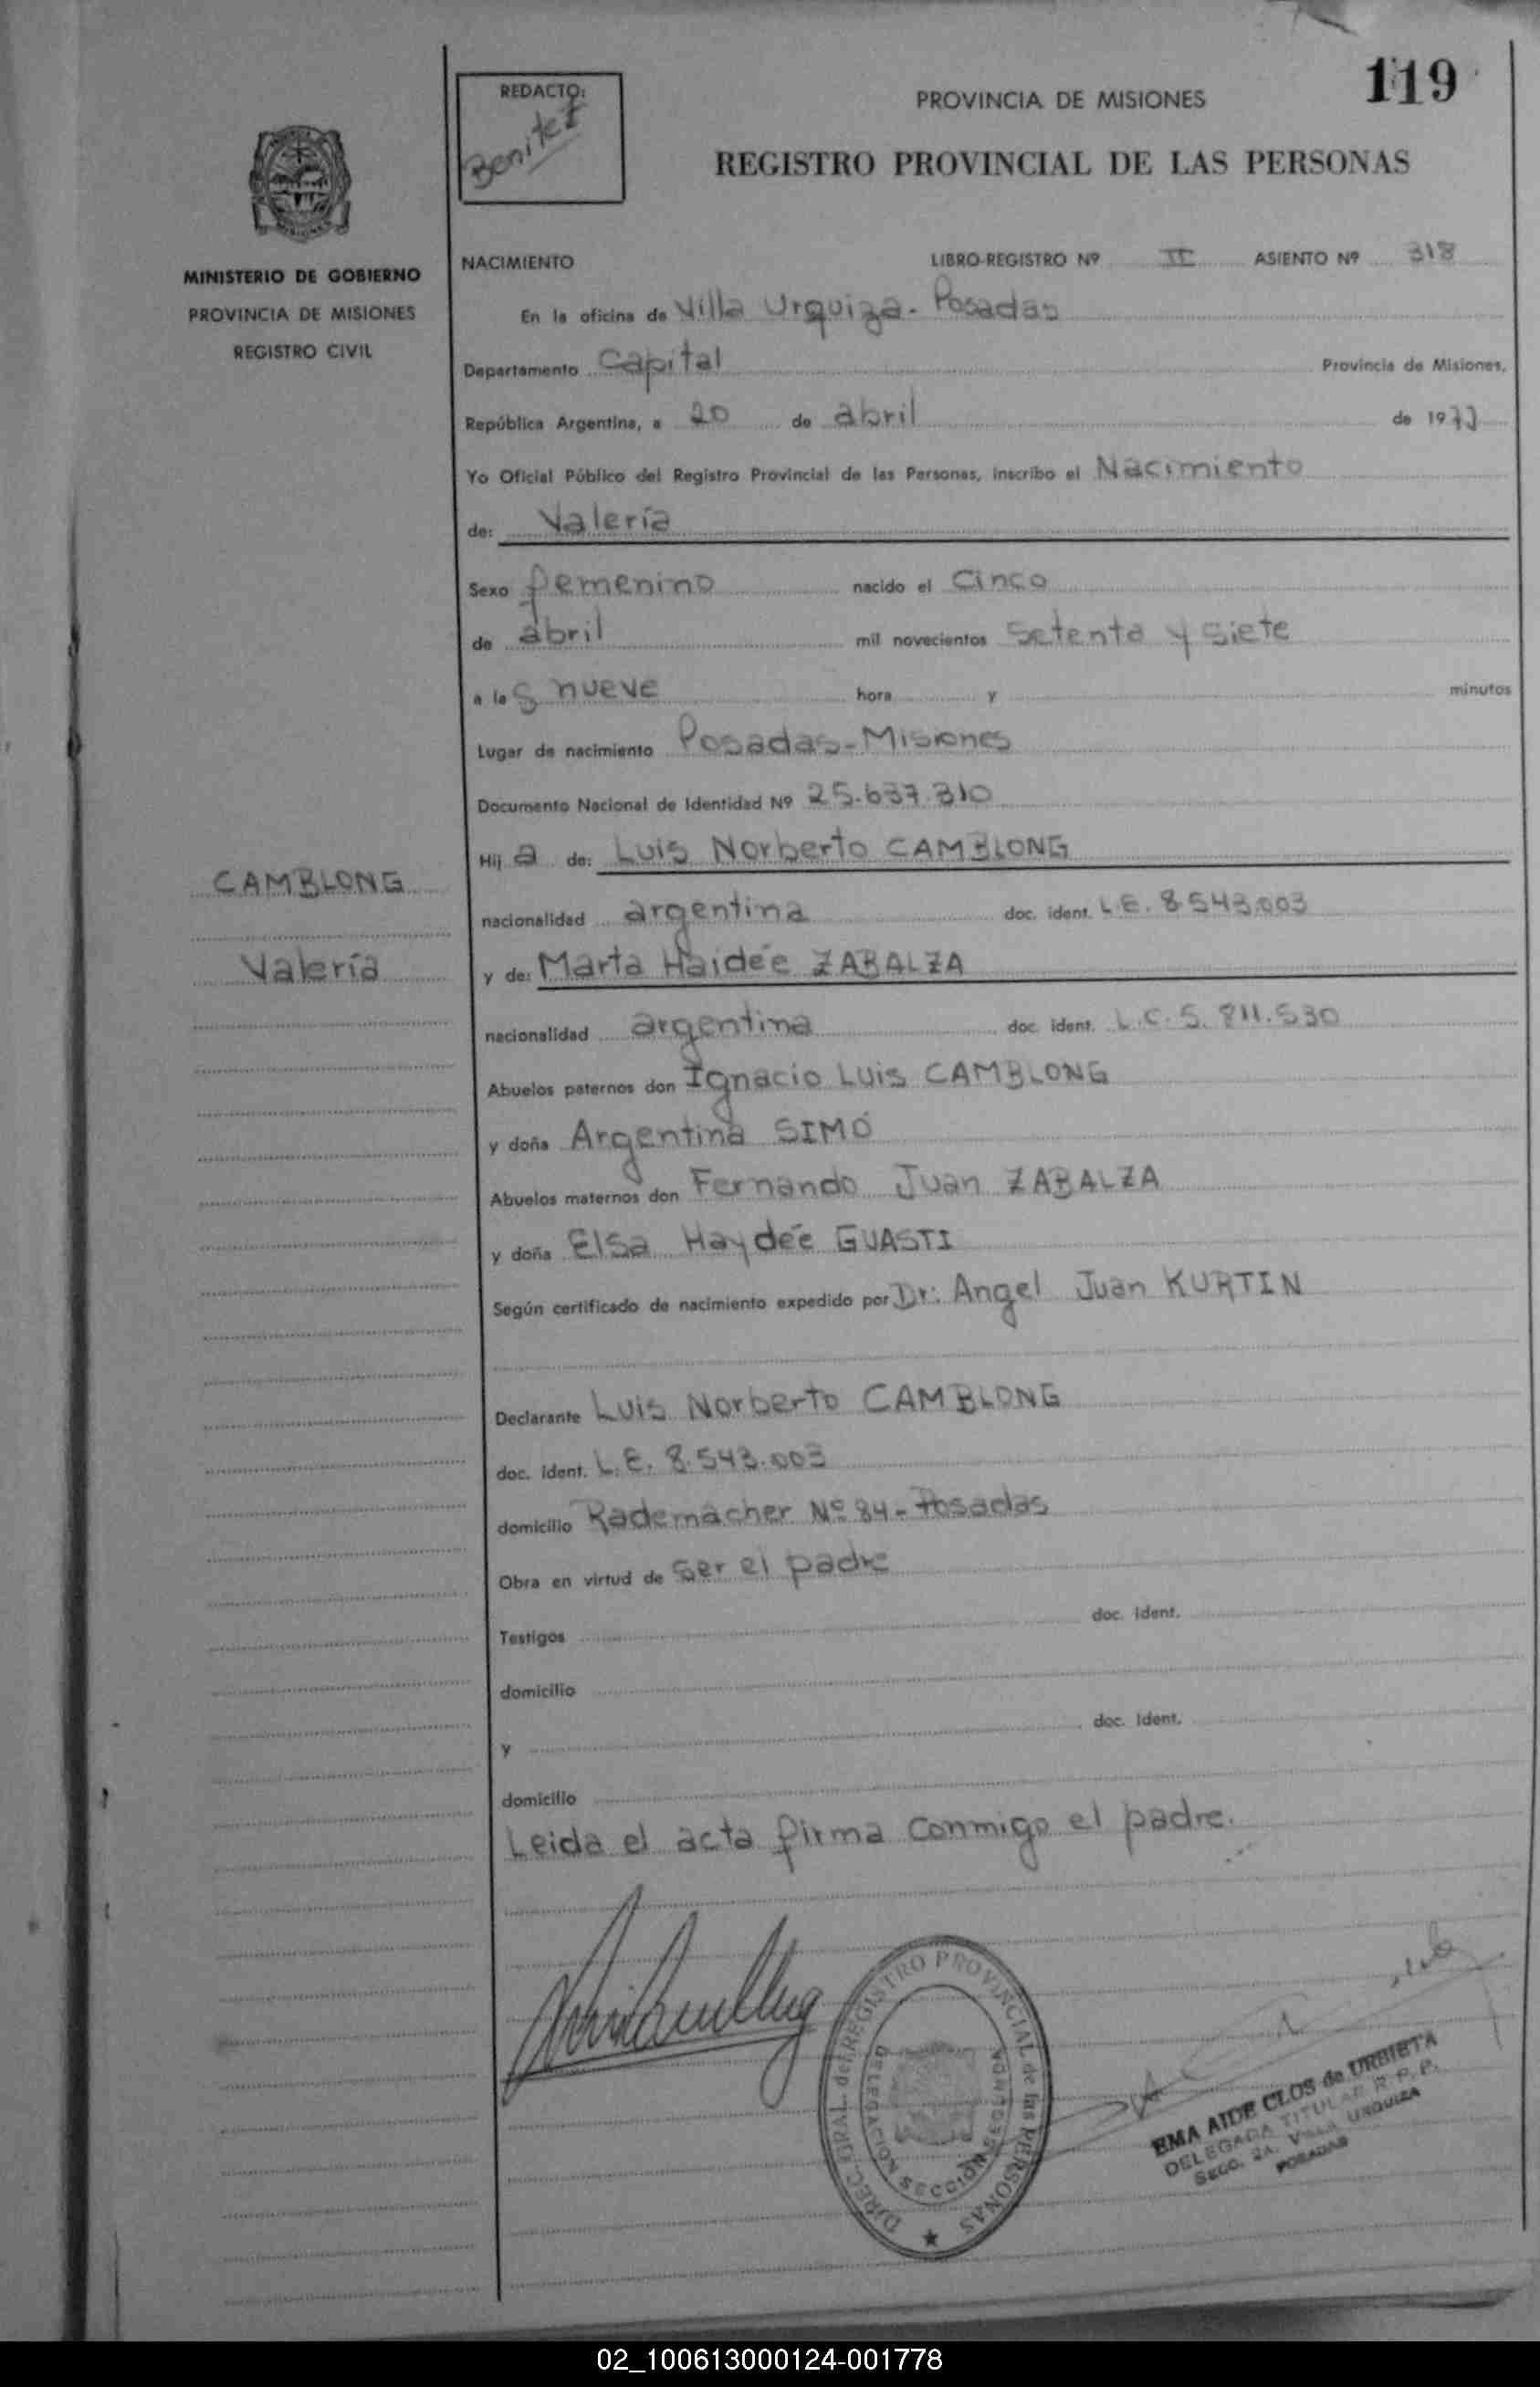 119
REDACTO:
Benitez
PROVINCIA DE MISIONES
REGISTRO PROVINCIAL DE LAS PERSONAS
MINISTERIO DE GOBIERNO
PROVINCIA DE MISIONES
REGISTRO CIVIL
NACIMIENTO LIBRO-REGISTRO Nº II ASIENTO Nº 318
En la oficina de Villa Urquiza - Posadas
Departamento Capital Provincia de Misiones,
República Argentina, a 20 de abril de 1977
Yo Oficial Público del Registro Provincial de las Personas, inscribo el Nacimiento
de: Valeria
Sexo femenino nacido el Cinco
de abril mil novecientos setenta y siete
a las nueve hora y minutos
Lugar de nacimiento Posadas - Misiones
Documento Nacional de Identidad Nº 25.637.310
Hij a de: Luis Norberto CAMBLONG
CAMBLONG
nacionalidad argentina doc. ident. L.E. 8.543.003
Valeria
y de: Marta Haidée ZABALZA
nacionalidad argentina doc. ident. L.C. 5.811.530
Abuelos paternos don Ignacio Luis CAMBLONG
y doña Argentina SIMÓ
Abuelos maternos don Fernando Juan ZABALZA
y doña Elsa Haydée GUASTI
Según certificado de nacimiento expedido por Dr: Angel Juan KURTIN
Declarante Luis Norberto CAMBLONG
doc. ident. L.E. 8.543.003
domicilio Rademacher Nº 84 - Posadas
Obra en virtud de ser el padre
Testigos doc. ident.
domicilio
y doc. ident.
domicilio
Leida el acta firma conmigo el padre.
DIREC. GRAL. del REGISTRO PROVINCIAL de las PERSONAS
DELEGACION SECCION SEGUNDA
EMA AIDE CLOS de URBIETA
DELEGADA TITULAR R.P.P.
SECC. 2A. VILLA URQUIZA
POSADAS
02_100613000124-001778